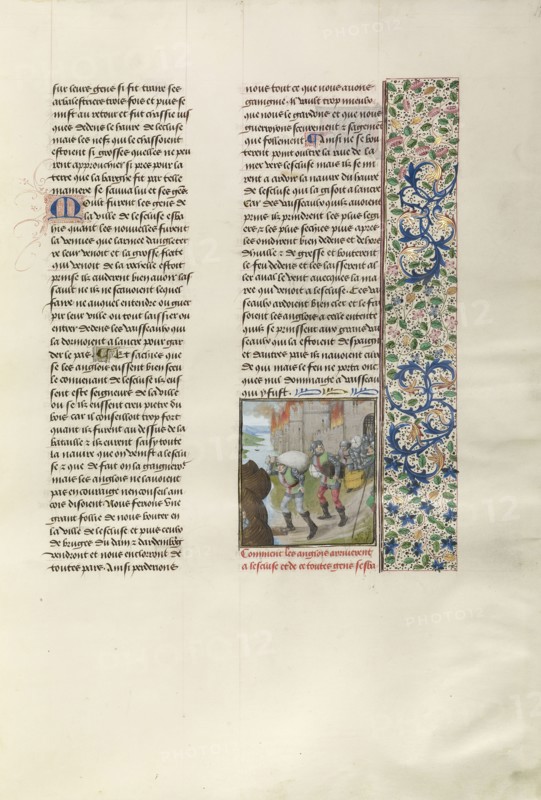 sur leurs gens si fit traire ses
arbalestriers trois fois et puis se
mist au retour et fut chassie jus
ques dedens le havre de lescluse
mais les nefs qui le chassoient
estoient si grosses quelles ne peu
rent approuchier si pres de la
terre que la barge fit par telle
maniere se sauva lui et ses gens
Moult furent les gens de
la ville de lescluse esba
his quant les nouvelles furent
la venues que larmee dangleter
re leur venoit et la grosse flotte
qui venoit de la rochelle estoit
prinse ilz eurent bien avoir las
sault ilz ne scavoient lequel
faire ne auquel entendre ou guer
pir leur ville ou tout laissier ou
entrer dedens les vaisseaulx qui
la dormoient a lancre pour gar
der le pas Et sachies que
se les anglois eussent bien sceu
le convenant de lescluse ilz eus
sent este seigneurs de la ville
ou se ilz eussent creu pietre du
bois car il conseilloit trop fort
quant ilz furent au dessus de la
bataille et ilz eurent saisy toute
la navire que on venist a lesclu
se et que de fait on la gaigneroit
mais les anglois ne lavoient
pas en courage ne en conseil ain
cois disoient Nous ferions une
grant follie de nous bouter en
la ville de lescluse et puis ceulx
de bruges du dam et dardenbourg
vendront et nous encloront de
toutes pars Ainsi perderions
nous tout ce que nous avons
gaingnie Il vault trop mieulx
que nous le gardons et que nous
guerroyons seurement et sagement
que follement Ainsi ne se bou
terent point oultre la rive de la
mer vers lescluse mais ilz se mi
rent a ardoir la navire du havre
de lescluse qui la gisoit a lancre
Car des vaisseaulx quilz avoient
prins ilz prindrent les plus legi
ers et les plus seches puis apres
les oindirent bien dedens et dehors
dhuille et de gresse et bouterent
le feu dedens et les laisserent al
ler aval le vent avecques la ma
ree qui venoit a lescluse Ces vais
seaulx ardoient bien cler et le fai
soient les anglois a celle entente
quilz se prinssent aux grans vais
seaulx qui la estoient despaigne
et dautres pais ilz navoient cure
de qui mais le feu ne porta onc
ques nul dommaige a vaisseau
qui y fust
Comment les anglois arriverent
a lescluse et de ce toutes gens sesba
PHOTO12